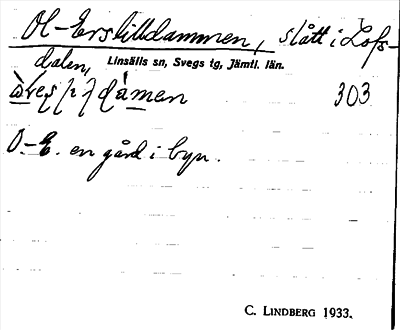 Ol-Erskilldammen, slått i Lofs-
dalen, Linsälls sn, Svegs tg, Jämtl. län.
dàmen 303
O-E. en gård i byn.
C. LINDBERG 1933.